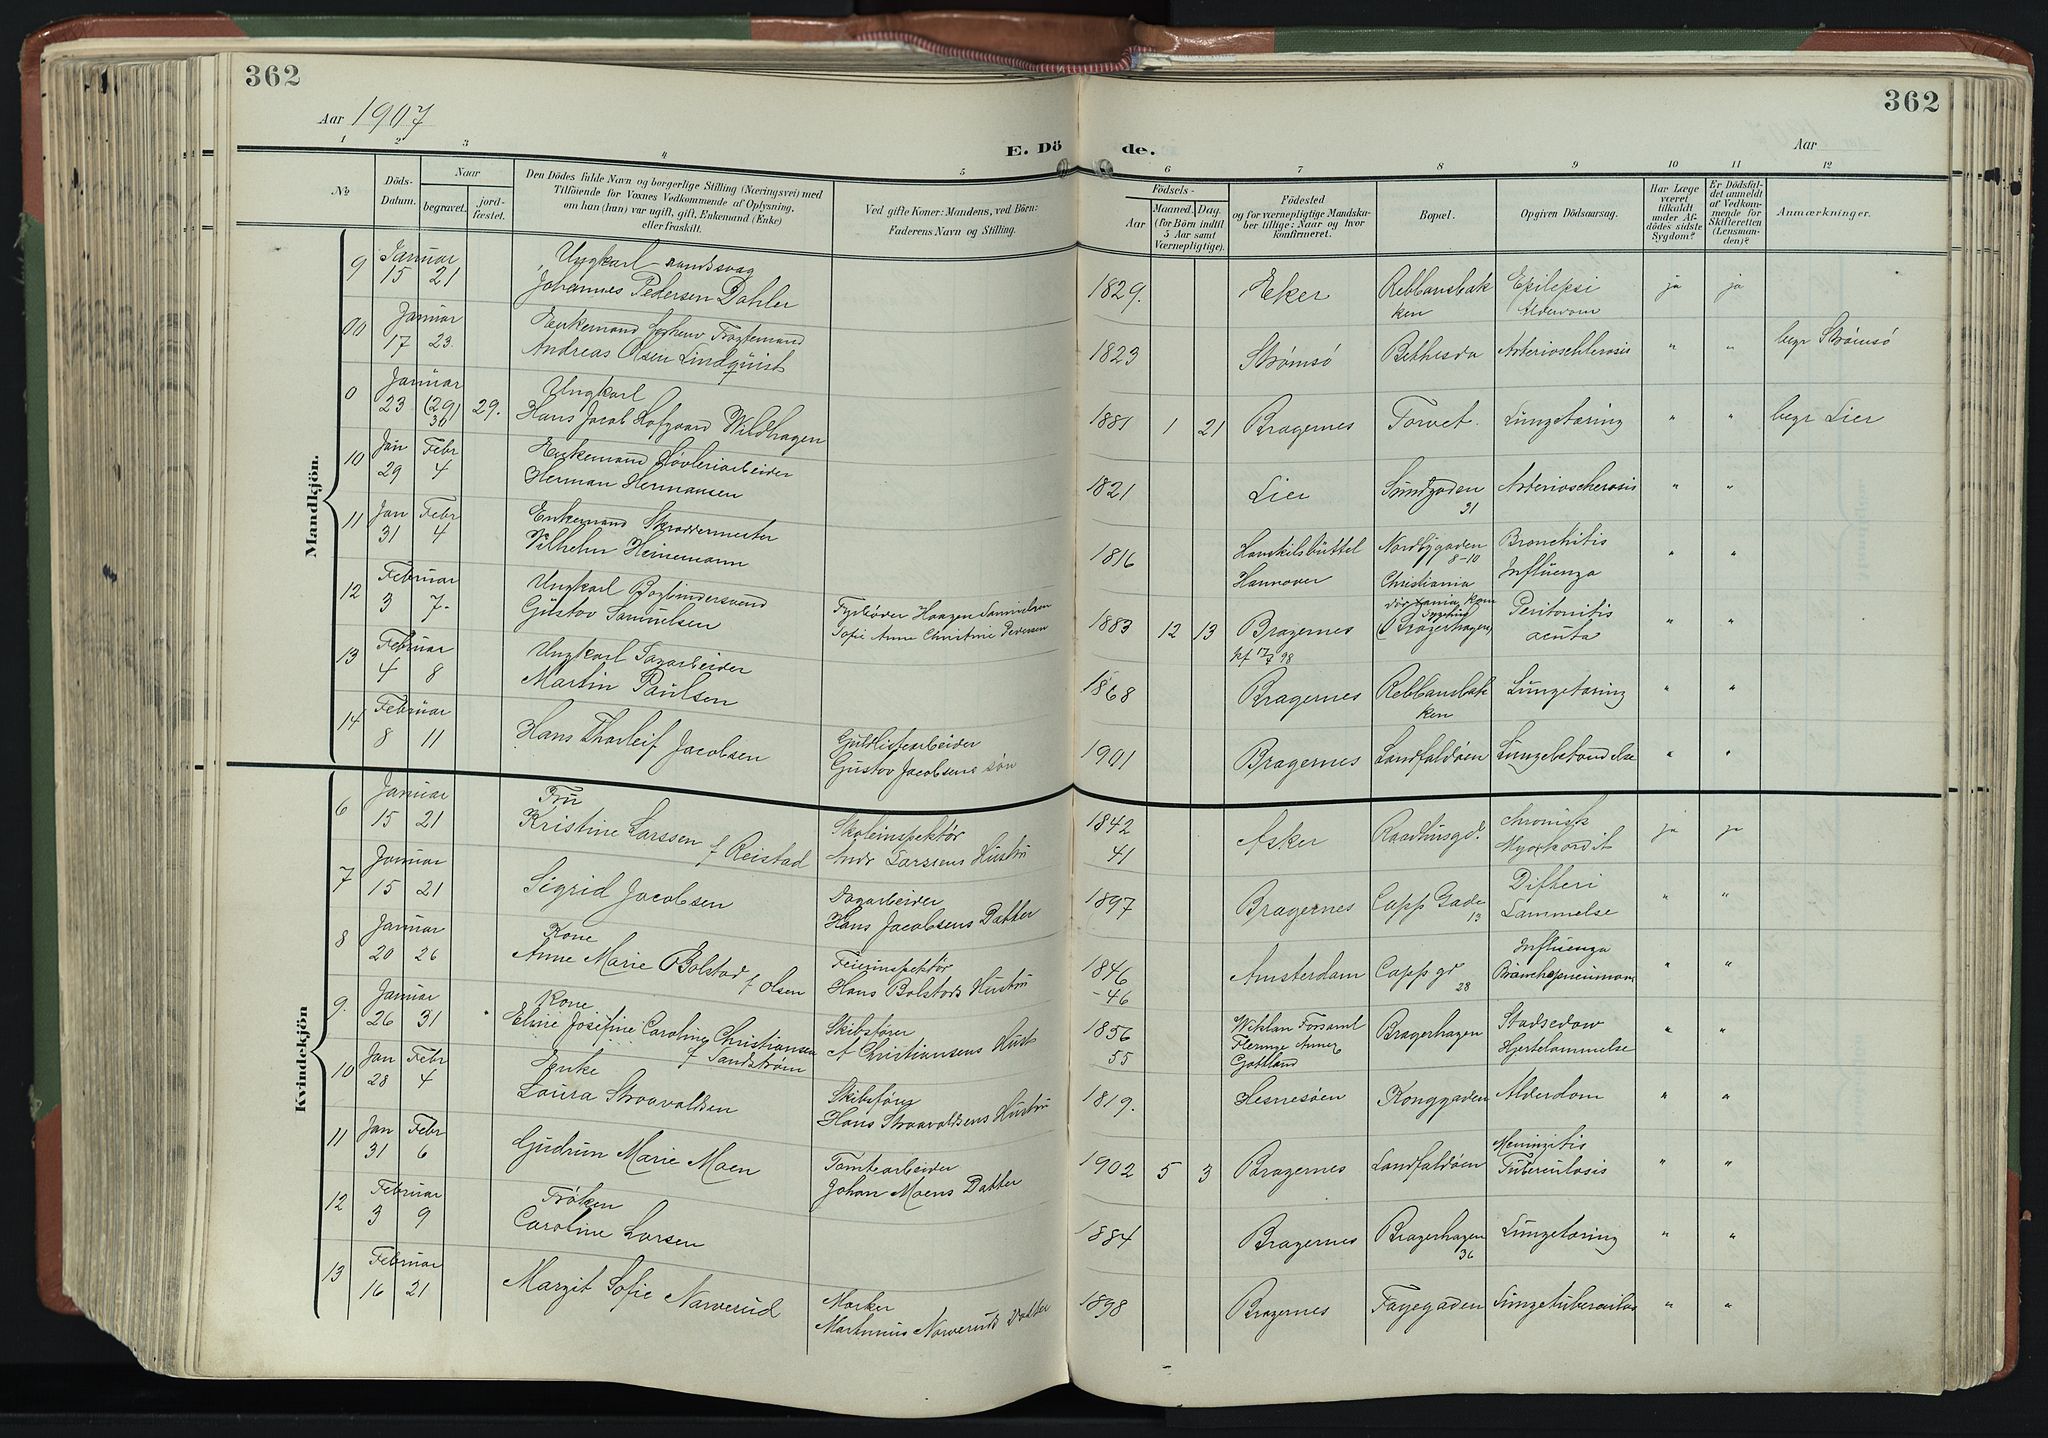 362
362
Aar 1907
E. Dö de.
Aar
1 2 3 4 5 6 7 8 9 10 11 12
No
Döds-Datum.
Naar
begravet.
jord-fæstet.
Den Dödes fulde Navn og borgerlige Stilling (Næringsvei) med
Tilföiende for Voxnes Vedkommende af Oplysning,
om han (hun) var ugift, gift, Enkemand (Enke)
eller fraskilt.
Ved gifte Koner: Mandens, ved Börn:
Faderens Navn og Stilling.
Födsels-
Aar
Maaned. Dag.
(for Börn indtil
5 Aar samt
Værnepligtige).
Födested
og for værnepligtige Mandska-
ber tillige: Naar og hvor
konfirmeret.
Bopæl.
Opgiven Dödsaarsag.
Har Læge
været
tilkaldt
under Af-
dödes sidste
Sygdom?
Er Dödsfal-
det anmeldt
af Vedkom-
mende for
Skifteretten
(Lensman-
den)?
Anmærkninger.
Mandkjön.
9 Januar 15 21 Ungkarl sindssvag
Johannes Pedersen Dahler 1829. Eker Rebbansbak
ken Epilepsi
Alderdom ja ja
Januar 17 23. Enkemand
Andreas Olsen Lindquist 1823 Strømsø Bethesda Arterioschlerosis " " begr Strømsø
0 Januar 23 (29) 30 29. Ungkarl
Hans Jacob Hofgaard Wildhagen 1881 1 21 Bragernes Torvet. Lungetæring " " begr Lier
10 Jan 29 Febr 4 Enkemand Høvleriarbeider
Herman Hermansen 1821 Lier Sundgaden
31 Arterioscherosis " "
11 Jan 31 Febr 4 Enkemand Skræddermester
Vilhelm Heinemann 1816 Hankilsbüttel
Hannover Nordbygaden
8-10 Bronchitis
Influenza " "
12 Februar 3 7- Ungkarl Bogbindersvend
Gustav Samuelsen Fyrbøder Haagen Samuelsen
Sofie Anne Christine Pedersen 1883 12 13 Bragernes
kf 98 Christiania
Bragerhagen Peritonitis
acuta " "
13 Februar 4 8 Ungkarl Dagarbeider
Martin Paulsen 1868 Bragernes Rebbansbak
ken Lungetæring " "
14 Februar 8 11 Hans Tharleif Jacobsen Guldlistearbeider
Gustav Jacobsens søn 1901 Bragernes Landfaldøen Lungebetændelse " "
Kvindekjön
6 Januar 15 21 Fru
Kristine Larssen f Reistad Skoleinspektør
Andr Larssens Hustru 1842
41 Asker Raadhusgd. chronisk
Myokardit ja ja
7 Januar 15 21 Sigrid Jacobsen Dagarbeider
Hans Jacobsens Datter 1897 Bragernes Capp Gade
13 Difteri
Lammelse " "
8 Januar 20 26 Kone
Anne Marie Bolstad f Olsen Feierinspektør
Hans Bolstads Hustru 1846
-46 Amsterdam Capp gd
28 Influenza
Bronchopneumoni " "
9. Januar 26 31 Kone
Eline Josefine Caroline Christiansen
f Sandstrøm Skibsfører
A Christiansens Hust 1856
55 Forsaml
Fleringe Annex
Gotland Bragerhagen
Hjertelammelse " "
10 Jan 28 Febr 4 Enke
Laura Straavoldsen Skibsfører
Hans Straavoldsens Hustru 1819. Hesnesøen Konggaden Alderdom " "
11 Jan 31 Febr 6 Gudrun Marie Moen Tomtearbeider
Johan Moens Datter 1902 5 3 Bragernes Landfaldøen Meningitis
Tuberculosis " "
12 Februar 3 9 Frøken
Caroline Larsen 1884 Bragernes Bragerhagen
36 Lungetæring " "
13 Februar 16 21 Margit Sofie Narverud Murker
Martinius Narveruds Datter 1898 Bragernes Fayegaden Lungetuberculos " "